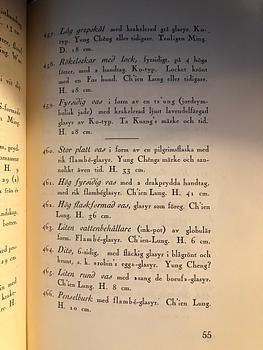 457. Låg grepskål med krakelerad grå glasyr. Ko-
typ. Yung Chêng eller tidigare. Troligen Ming.
D. 18 cm.
458. Rökelsekar med lock, fyrsidigt, på 4 höga
fötter, med 2 handtag. Ko-typ. Locket krönt
med en Foe hund. Ch'ien Lung eller tidigare.
H. 28 cm.
459. Fyrsidig vas i form av en ts'ung (jordsym-
bolisk jade) med krakelerad ljust lavendelfärgad
glasyr av Ko-typ. Ta Kuang's märke och tid.
H. 28 cm.
460. Stor platt vas i form av en pilgrimsflaska med
rik flambé-glasyr. Yung Chêngs märke och san-
nolikt även tid. H. 33 cm.
461. Hög fyrsidig vas med 2 deakprydda handtag,
med rik flambéglasyr. Ch'ien Lung. H. 41 cm.
462. Hög flaskformad vas, glasyr som föreg. Ch'ien
Lung. H. 36 cm.
463. Liten vattenbehållare (ink-pot) av globulär
form. Flambé-glasyr. Ch'ien-Lung. H. 6 cm.
464. Dito, 6-sidig, med fläckig glasyr i blågrönt och
brunt, s. k. rödbin's eggs-glasyr. Yung Cheng?
465. Liten rund vas med s. k.
H. 8 cm.
466. Penselburk med flambé-glasyr. Ch'ien Lung.
H. 10 cm.
55